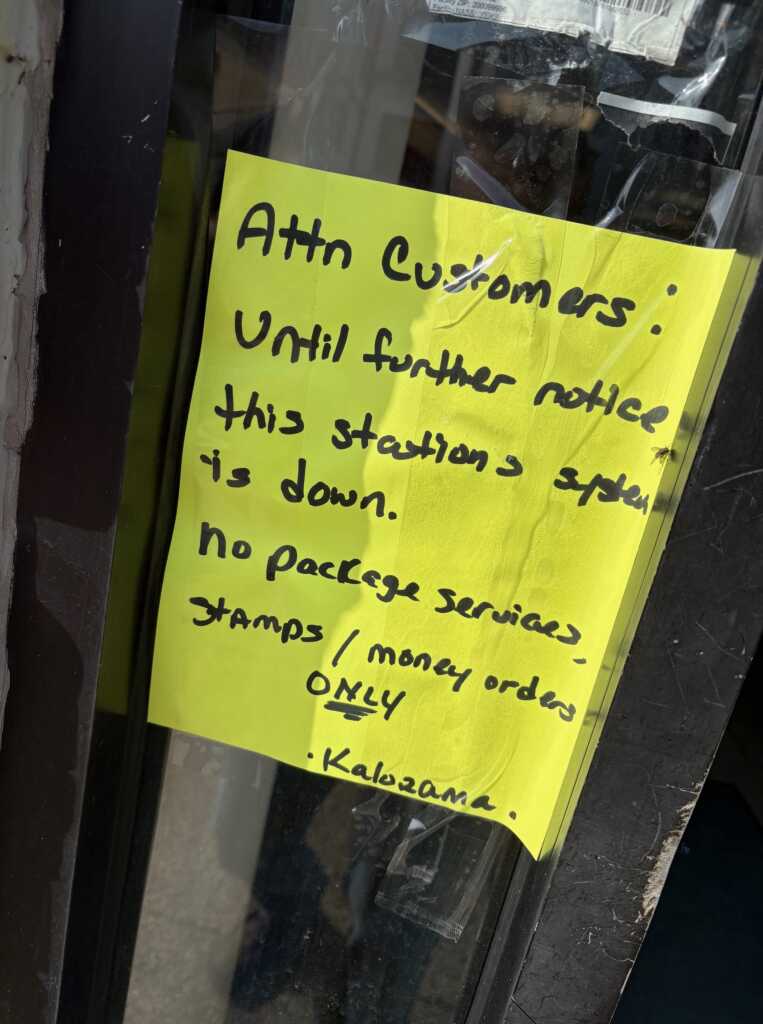 Attn Customers:
Until further notice
this stations system
is down.
No package services,
STAMPS / money orders
ONLY
. Kalozama.